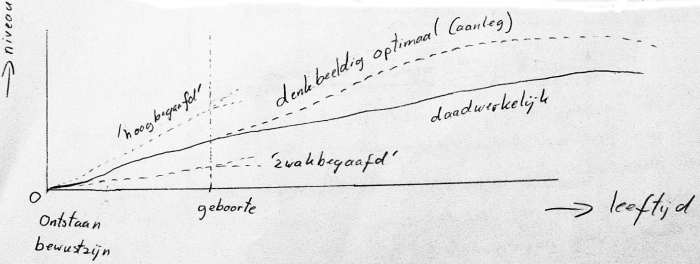 → niveau
'hoogbegaafd'
denkbeeldig optimaal (aanleg)
daadwerkelijk
'zwakbegaafd'
0
geboorte
→ leeftijd
Ontstaan
bewustzijn